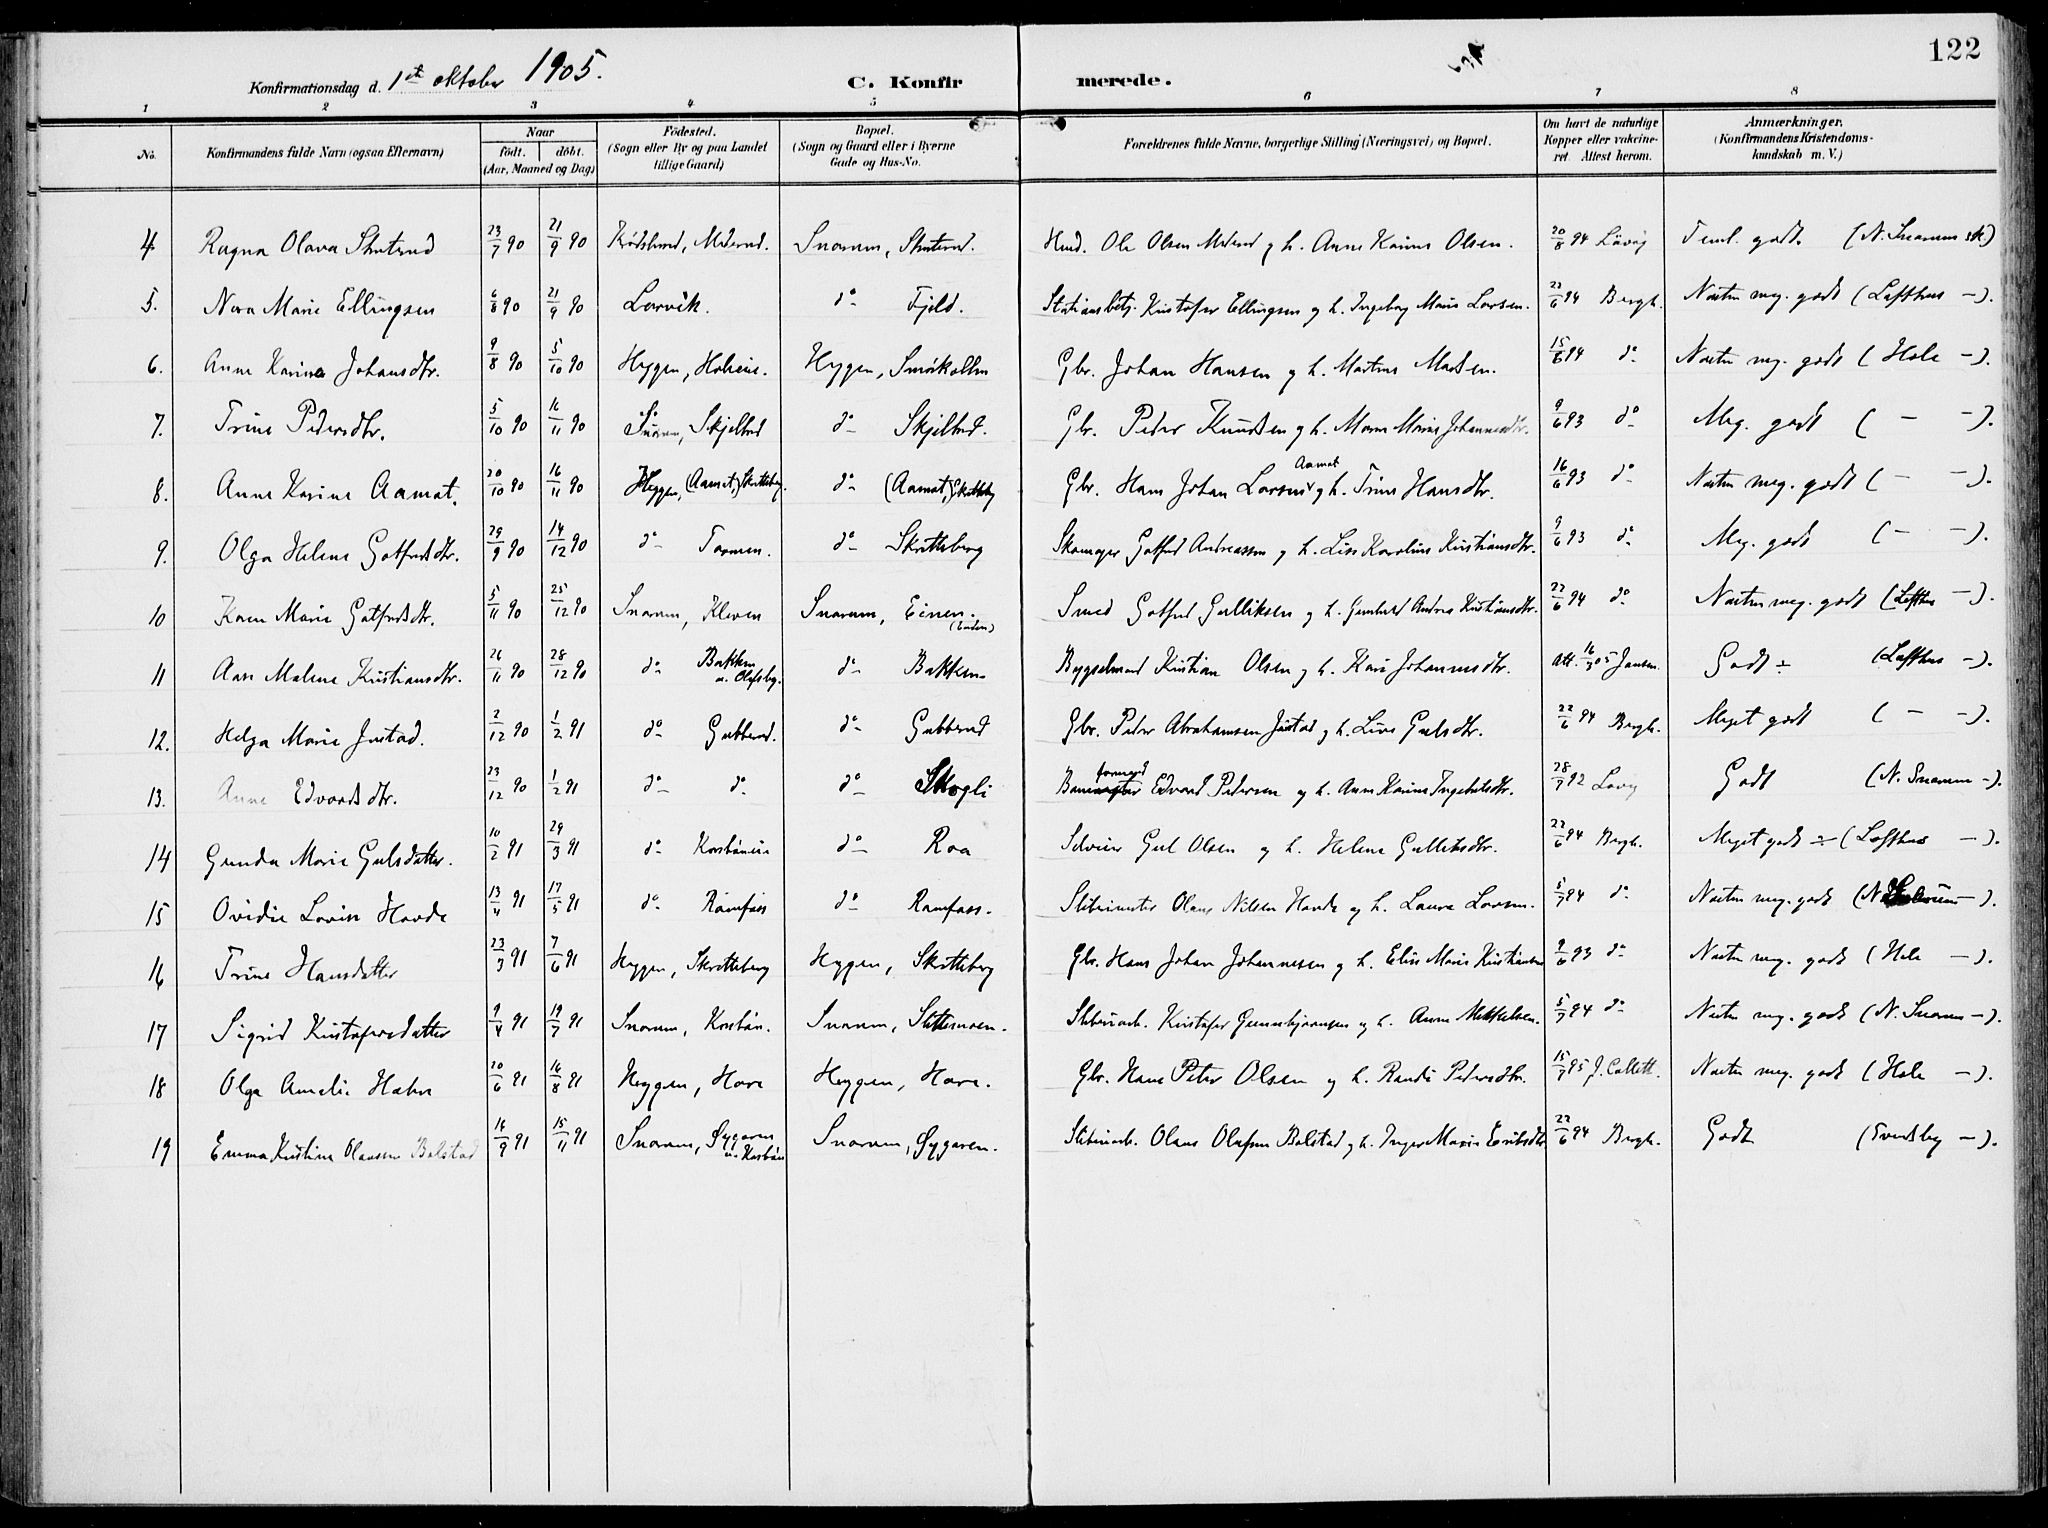 122
Konfirmationsdag d. 1ste oktober 1905. C. Konfirmerede.
1 2 3 4 5 6 7 8
No. Konfirmandens fulde Navn (ogsaa Efternavn) Naar født. døbt. (Aar, Maaned og Dag) Fødested. (Sogn eller By og paa Landet tillige Gaard) Bopæl. (Sogn og Gaard eller i Byerne Gade og Hus-No. Forældrenes fulde Navne, borgerlige Stilling (Næringsvei) og Bopæl. Om havt de naturlige Kopper eller vakcineret. Attest herom. Anmærkninger. (Konfirmandens Kristendomskundskab m. V.)
4. Ragna Olava Skuterud 23/7 90 21/9 90 Snarum, Skuterud. Ole Olsen og h. Anne Karine Olsen. 20/8 94 Teml. godt. (N. Snarum sk.)
5. Nora Marie Ellingsen 6/8 90 21/9 90 Larvik. do Fjeld. Stationsbetj. Kristofer Ellingsen og h. Ingeborg Marie Larsen. 22/6 94 Bergh. Næsten meg. godt (Lofthus -).
6. Anne Karine Johansdtr. 9/8 90 5/10 90 Heggen, Heggen, Smørkollen Gbr. Johan Hansen og h. Martine 15/6 94 do Næsten meg. godt (Hole -).
7. Trine Pedersdtr. 5/10 90 16/11 90 Snarum, Skjelbred do Skjelbred. Gbr. Peder Knudsen og h. Maren Marie Johannesdtr. 9/6 93 do Meg. godt ( - -).
8. Anne Karine Aamot. 20/10 90 16/11 90 Heggen, (Aamot,) Skretteberg. do (Aamot,) Skretteberg Gbr. Hans Johan Larsen Aamot og h. Trine Hansdtr. 16/6 93 do Næsten meg. godt ( - -).
9. Olga Helene Gotfredsdtr. 29/9 90 14/12 90 do do Skretteberg Skomager Gotfred Andreassen og h. Lise Karoline Kristiansdtr. 9/6 93 do Meg. godt ( - -).
10 Karen Marie Gotfredsdtr. 5/11 90 25/12 90 Snarum, Kleven Snarum, Einen. Smed Gotfred Gulliksen og h. Gunhild Andrea Kristiansdtr. 22/6 94 do Næsten meg. godt (Lofthus -).
11 Aase Malene Kristiansdtr. 26/11 90 28/12 90 do Bakken u. Olafsby. do Bakken. Bygselmand Kristian Olsen og h. Kari Johannesdtr. Att. 16/3 05 Jansen. Godt ÷ (Lofthus -).
12. Helga Marie Justad. 2/12 90 1/2 91 do Gubberud. do Gubberud Gbr. Peder Abrahamsen Justad og h. Live Gulsdtr. 22/6 94 Bergh. Meget godt ( - -).
13. Anne Edvardsdtr. 23/12 90 1/2 91 do do do Skogli Baneformand Edvard Pedersen og h. Anne Karine Ingebretsdtr. 28/7 92 Godt (N. Snarum -).
14 Gunda Marie Gulsdatter. 10/2 91 29/3 91 do do Roa Selveier Gul Olsen og h. Helene 22/6 94 Bergh. Meget godt ÷ (Lofthus -).
15 Ovidie Lovise Hovde 13/4 91 17/5 91 do Ramfoss do Ramfoss. Sliberimester Olaus Nilsen Hovde og h. Laura Larsen. 5/7 94 do Næsten meg. godt (N. Snarum -).
16 Trine Hansdatter 23/3 91 7/6 91 Heggen, Skretteberg Heggen, Skretteberg Gbr. Hans Johan Johannesen og h. Elise Marie Kristiansen 9/6 93 do Næsten meg. godt (Hole -).
17 Sigrid Kristofersdatter 9/4 91 19/7 91 Snarum, Korsbøn. Snarum, Slettemoen. Sliberiarb. Kristofer Gunbjørnsen og h. Anne Mikkelsen. 5/7 94 do Næsten meg. godt (N. Snarum -).
18 Olga Amalie Hovre 20/6 91 16/8 91 Heggen, Hovre Heggen, Hovre. Gbr. Hans Peter Olsen og h. Randi Pedersdtr. 15/7 95 J. Collett. Næsten meg. godt (Hole -).
19 Emma Kristine Olaussen Bolstad 16/9 91 15/11 91 Snarum, Sygaren u. Korsbøn Snarum, Sygaren. Sliberiarb. Olaus Olafsen Bolstad og h. Inger Marie Eriksdtr. 22/6 94 Bergh. Godt (Sverdsby -).